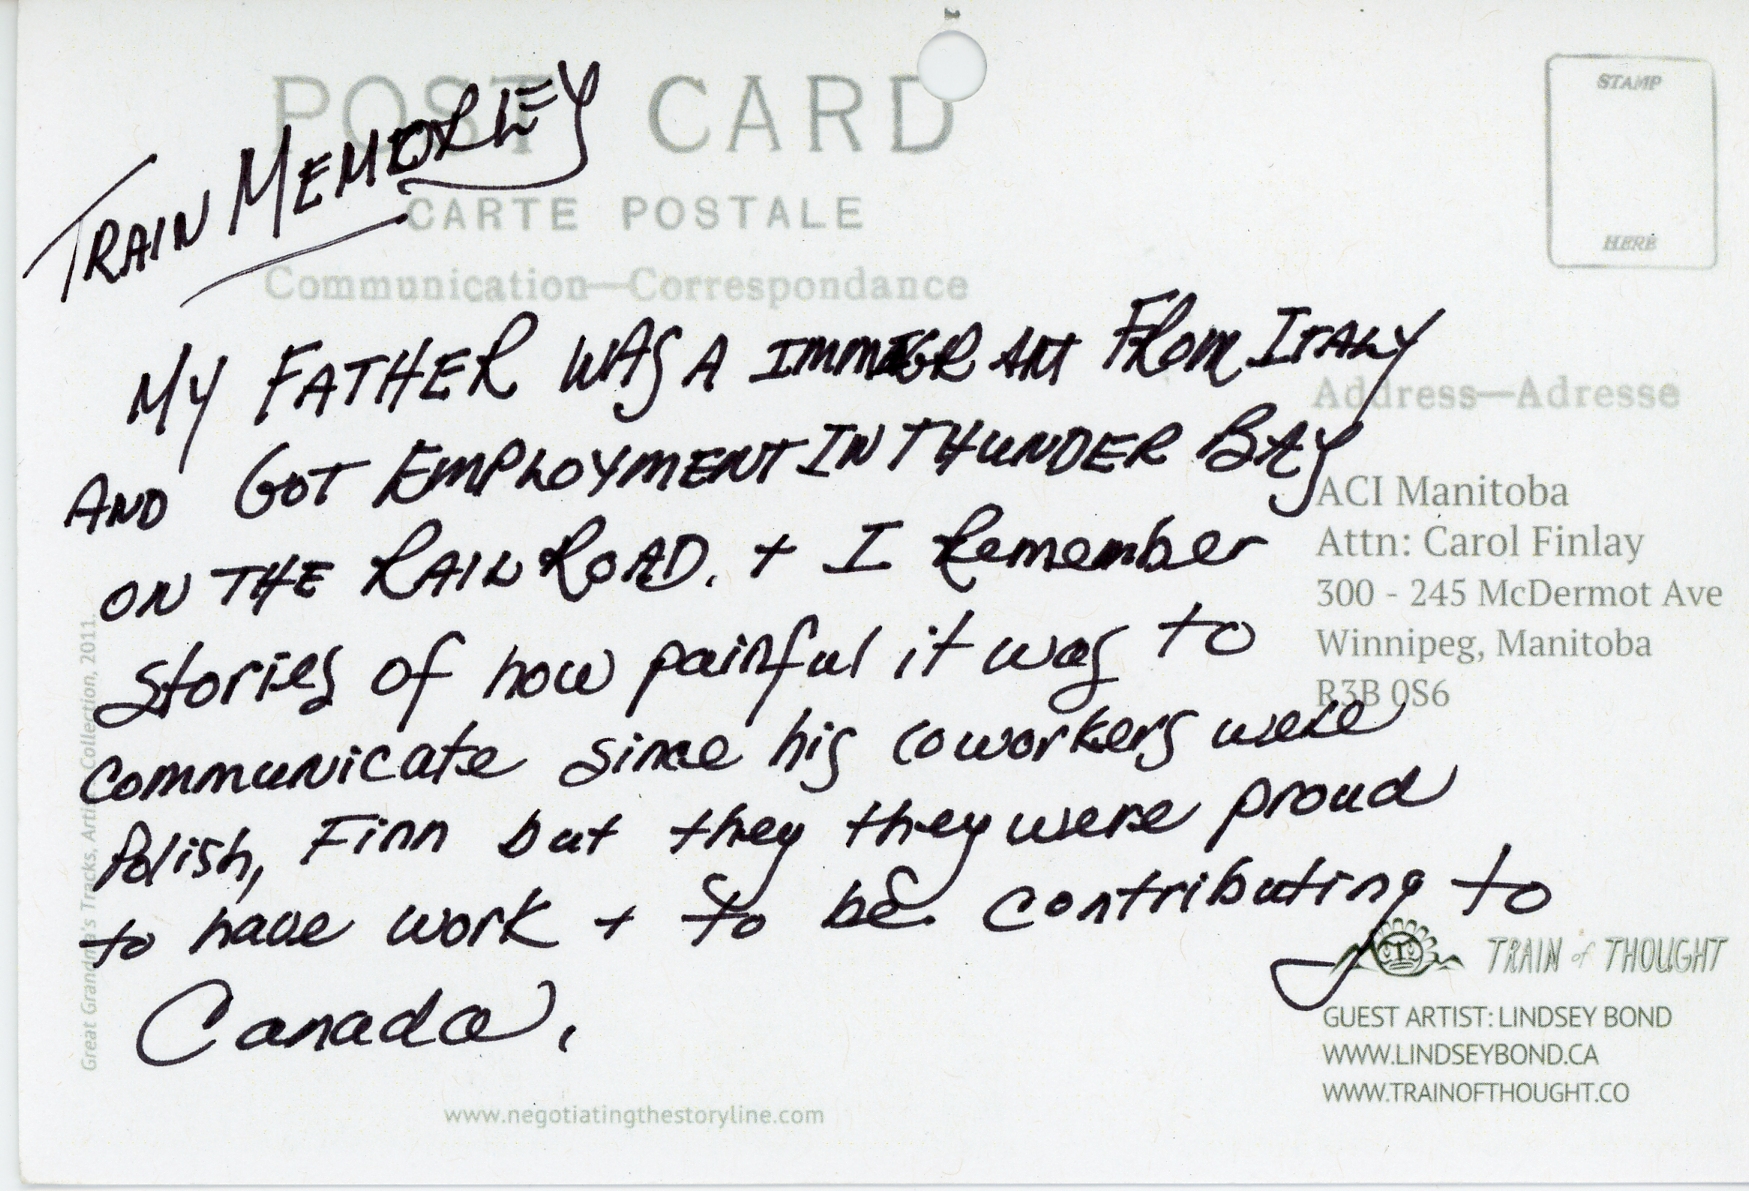 POST CARD
CARTE POSTALE
Communication—Correspondence
STAMP
HERE
TRAIN MEMORLEY
MY FATHER WAS A IMMIGRANT FROM ITALY
AND GOT EMPLOYMENT IN THUNDER BAY
ON THE RAILROAD. + I Remember
stories of how painful it was to
communicate since his coworkers were
Polish, Finn but they they were proud
to have work + to be contributing to
Canada.
Address—Adresse
ACI Manitoba
Attn: Carol Finlay
300 - 245 McDermot Ave
Winnipeg, Manitoba
R3B 0S6
TRAIN of THOUGHT
GUEST ARTIST: LINDSEY BOND
WWW.LINDSEYBOND.CA
WWW.TRAINOFTHOUGHT.CO
Great Grandma's Tracks, Artist Collection, 2011.
www.negotiatingthestoryline.com